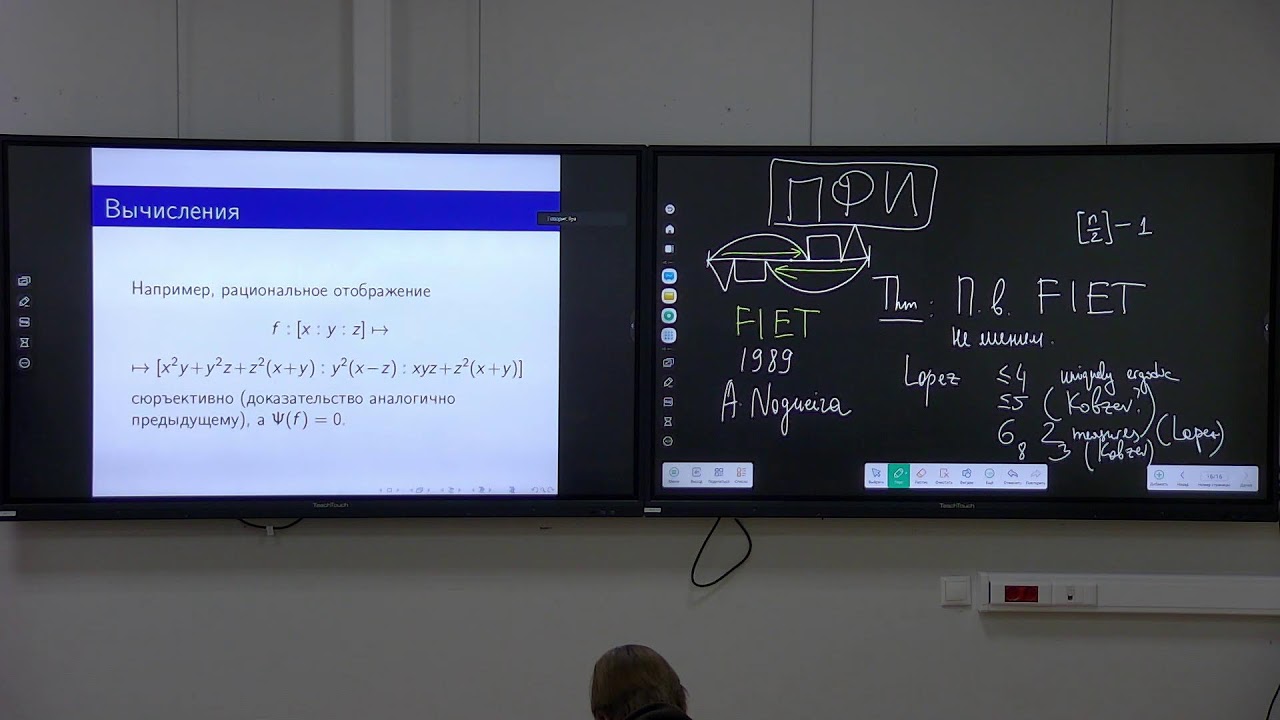 Вычисления
Например, рациональное отображение
f : [x : y : z] ↦
↦ [x²y+y²z+z²(x+y) : y²(x−z) : xyz+z²(x+y)]
сюръективно (доказательство аналогично
предыдущему), а Ψ(f) = 0.
TeachTouch
ПФИ
[n/2] − 1
FIET
1989
A. Nogueira
Thm: П. в. FIET
не миним.
Lopez ≤4 uniquely ergodic
≤5 (Kobzev?)
6 2 measures (Lopez)
8 3 (Kobzev)
16/16
TeachTouch